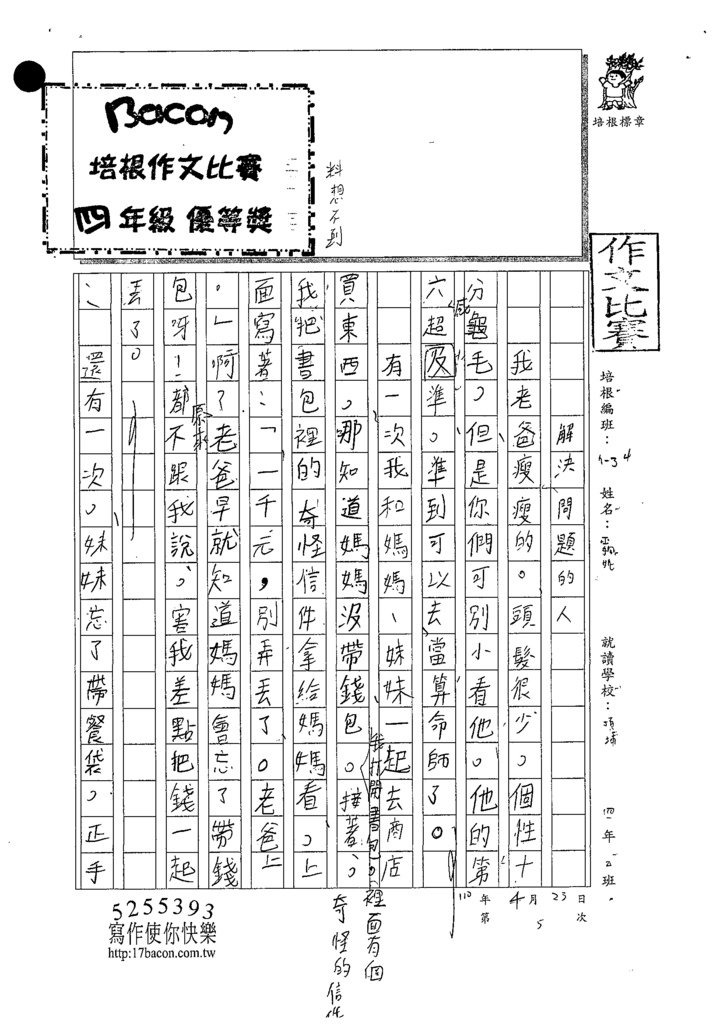 培根標章
作文比賽
Bacon
培根作文比賽
四年級 優等獎
培根編班：
姓名：
就讀學校：
四年
班。
110年4月23日
第5次
解決問題的人
我老爸瘦瘦的。頭髮很少。個性十
分龜毛。但是你們可別小看他。他的第
六感超及準。準到可以去當算命師了。
有一次我和媽媽、妹妹一起去商店
買東西。哪知道媽媽沒帶錢包。接著。
料想不到
我打開書包。裡面有個
奇怪的信件
我把書包裡的奇怪信件拿給媽媽看。上
面寫著：「一千元，別弄丟了。老爸上
。」啊？原來老爸早就知道媽媽會忘了帶錢
包呀！都不跟我說。害我差點把錢一起
丟了。
還有一次。妹妹忘了帶餐袋。正手
5255393
寫作使你快樂
http:17bacon.com.tw